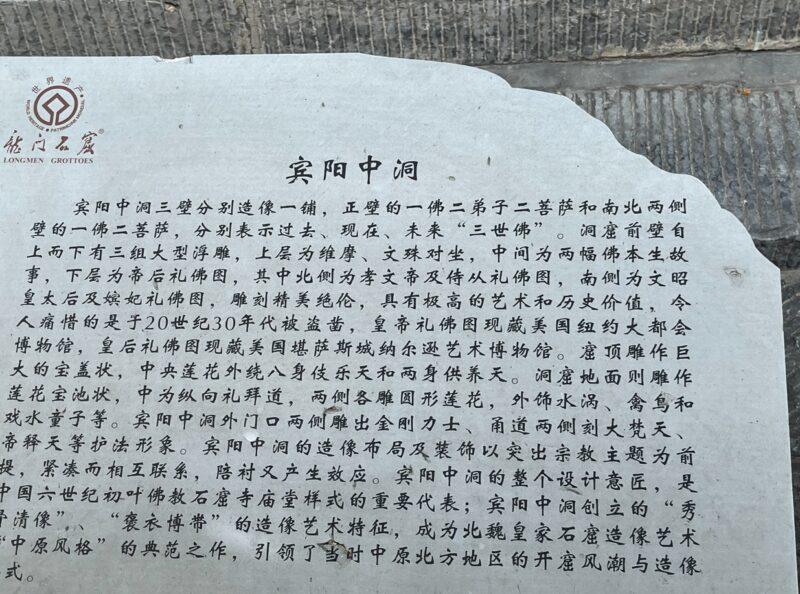 世界遗产
WORLD HERITAGE • PATRIMOINE MONDIAL
龙门石窟®
LONGMEN GROTTOES
宾阳中洞
宾阳中洞三壁分别造像一铺，正壁的一佛二弟子二菩萨和南北两侧
壁的一佛二菩萨，分别表示过去、现在、未来“三世佛”。洞窟前壁自
上而下有三组大型浮雕，上层为维摩、文殊对坐，中间为两幅佛本生故
事，下层为帝后礼佛图，其中北侧为孝文帝及侍从礼佛图，南侧为文昭
皇太后及嫔妃礼佛图，雕刻精美绝伦，具有极高的艺术和历史价值，令
人痛惜的是于20世纪30年代被盗凿，皇帝礼佛图现藏美国纽约大都会
博物馆，皇后礼佛图现藏美国堪萨斯城纳尔逊艺术博物馆。窟顶雕作巨
大的宝盖状，中央莲花外绕八身伎乐天和两身供养天。洞窟地面则雕作
莲花宝池状，中为纵向礼拜道，两侧各雕圆形莲花，外饰水涡、禽鸟和
戏水童子等。宾阳中洞外门口两侧雕出金刚力士、甬道两侧刻大梵天、
帝释天等护法形象。宾阳中洞的造像布局及装饰以突出宗教主题为前
提，紧凑而相互联系，陪衬又产生效应。宾阳中洞的整个设计意匠，是
中国六世纪初叶佛教石窟寺庙堂样式的重要代表；宾阳中洞创立的“秀
骨清像”、“褒衣博带”的造像艺术特征，成为北魏皇家石窟造像艺术
“中原风格”的典范之作，引领了当时中原北方地区的开窟风潮与造像
式。